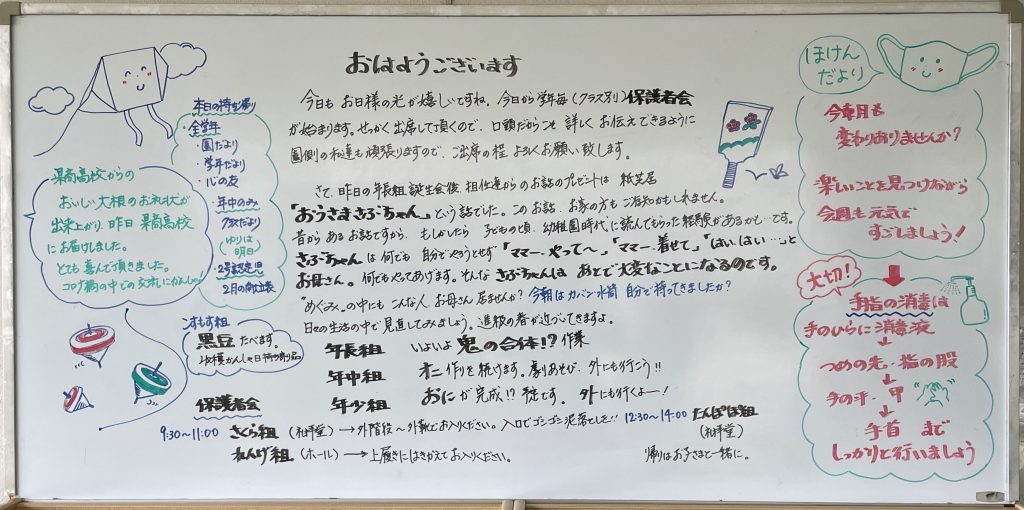 おはようございます
今日も お日様の光が嬉しいですね。今日から学年毎(クラス別)保護者会
が始まります。せっかく出席して頂くので、口頭だからこそ 詳しく お伝えできるように
園側の私達も頑張りますので、ご出席の程 よろしくお願い致します。
さて、昨日の年長組誕生会後、担任達からのお話のプレゼントは 紙芝居
「おうさまさぶちゃん」という話でした。このお話、お家の方も ご存知かもしれません。
昔からあるお話ですから、もしかしたら 子どもの頃、幼稚園時代に読んでもらった経験があるかも…です。
さぶちゃんは何でも 自分でやろうとせず「ママー、やって〜」「ママー、着せて」「はい、はい…」と
お母さん。何でもやってあげます。そんな さぶちゃんは あとで大変なことになるのです。
"めぐみ"の中にも こんな人 お母さん 居ませんか?今朝は カバン・水筒 自分で持ってきましたか?
日々の生活の中で 見直してみましょう。進級の春が近づいてきますよ。
年長組 いよいよ 鬼の合体!?作業
年中組 オニ作りを続けます。劇あそび、外にも行こう!!
年少組 おにが完成!?です。外にも行くよー!
本日の持ち帰り
・全学年
・園だより
・学年だより
・心の友
・年中のみ
クラスだより
(ゆりは明日)
・2号認定児
2月の献立表
県商高校からの
おいしい大根のお礼状が
出来上がり、昨日 県商高校
にお届けしました。
とても喜んで頂きました。
コロナ禍の中での交流にかんしゃ!
こすもす組
黒豆 たべます。
保護者会
9:30〜11:00 さくら組 (礼拝堂)→外階段〜外靴でお入りください。入口でゴシゴシ泥落としを!!
れんげ組 (ホール)→上履きにはきかえてお入りください。
12:30〜14:00 たんぽぽ組
(礼拝堂)
帰りはお子さまと一緒に。
ほけん
だより
今月も
変わりありませんか?
楽しいことを見つけながら
今週も元気で
すごしましょう!
大切!
手指の消毒は
手のひらに消毒液
つめの先・指の股
手の平・甲
手首 まで
しっかりと行いましょう